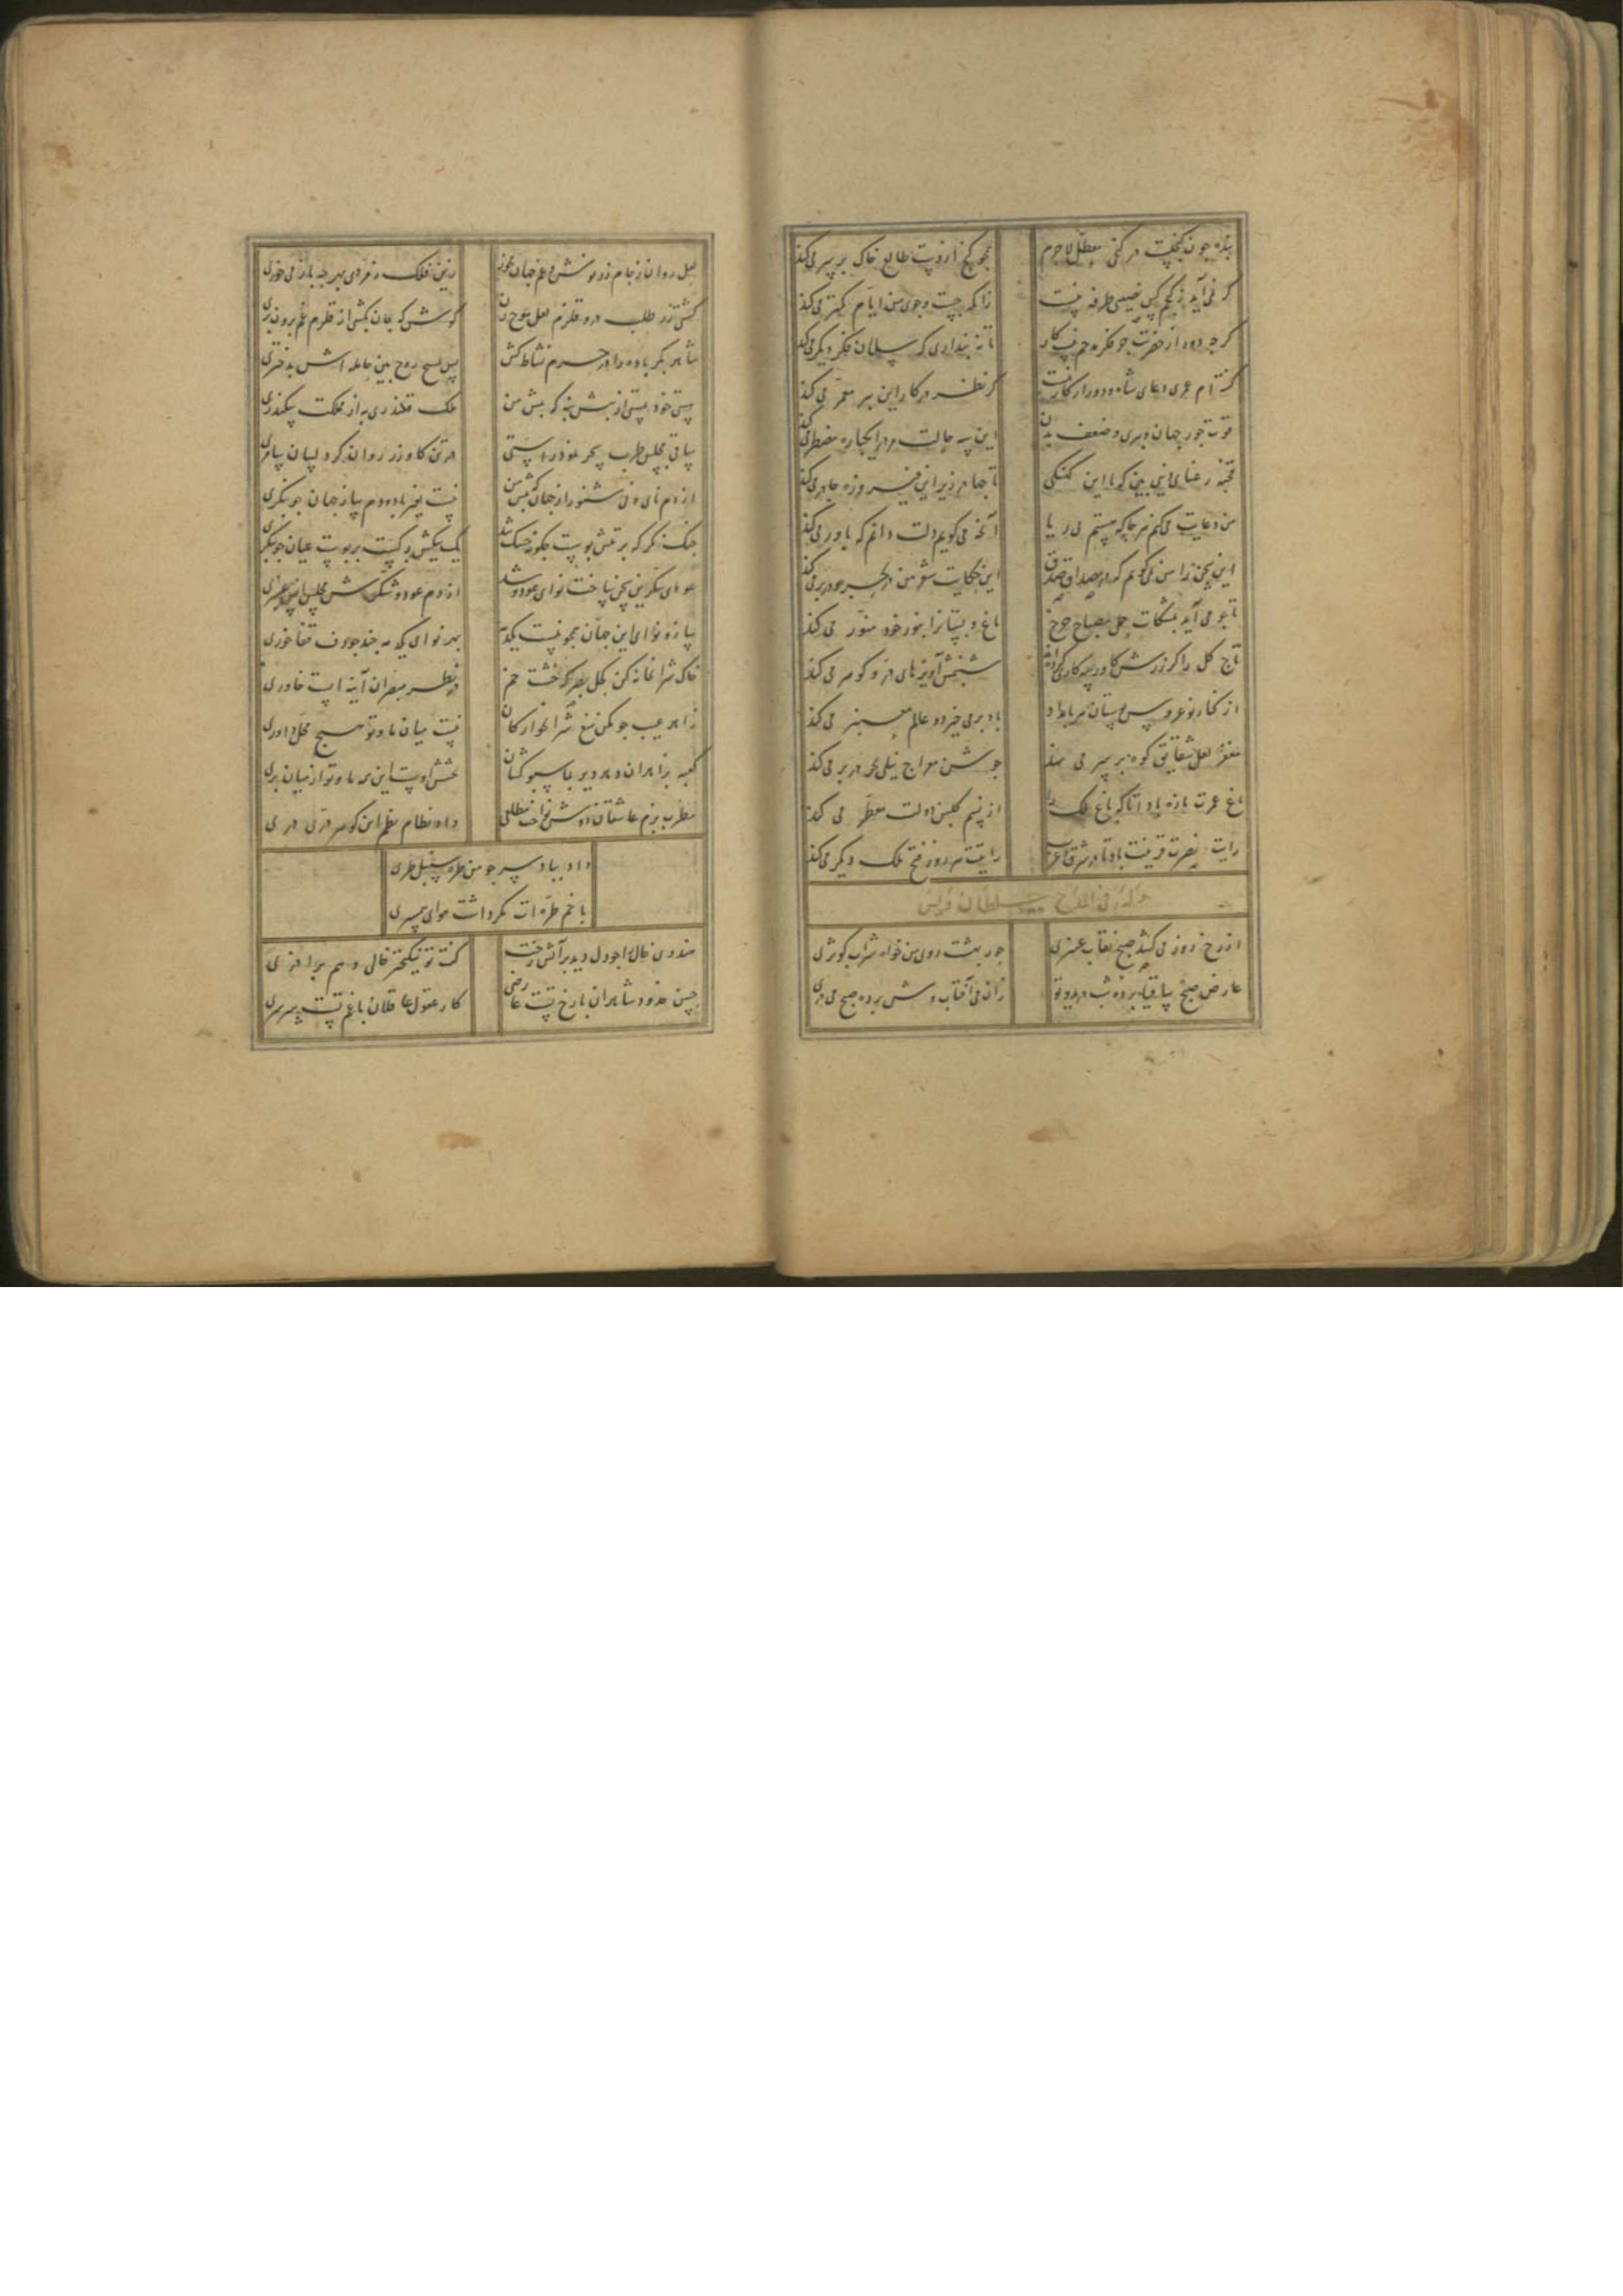 بنده چون گنجست در کنجی معطل لاجرم همچو گنج از دست طالع خاک بر سر می‌کند
گر نمی‌آید ز گنجم کس نصیبی طرفه نیست زانکه جست و جوی من ایام کمتر می‌کند
گرچه دورم از حضرت جو فکر مدحم نیست کار تا نه پنداری که سلمان فکر دیگر می‌کند
گفته‌ام عمری دعای شاه و دور از کار نیست گر نظر در کار این پیر معمر می‌کند
قوت جور جهان و پیری و ضعف بدن این سه حالت مر مرا یکباره مضطر می‌کند
قحبه رعنای دنیی بین که با این کهنگی تا چها در زیر این فیروزه چادر می‌کند
من دعایت می‌کنم هر جا که هستم بی ریا آنچه می‌گویم دلت دانم که باور می‌کند
این سخن را من نمی‌گویم که در مصداق صدق این حکایت شو من
تا چو می‌آید بمشکات حمل مصباح چرخ باغ و بستانرا بنور خود منور می‌کند
تاج گل را کز زرش کاوریسه کاری کرده‌اند شبنمش آویزهای در و گوهر می‌کند
از کنار نو عروس بوستان هر بامداد باد بر می‌خیزد و عالم معنبر می‌کند
مغفر لعل شقایق کوه بر سر می نهد جوشن مواج نیلی بحر در بر می‌کند
باغ عمرت تازه بادا تا که باغ ملک را از نسیم گلبن دولت معطر می کند
رایت نصرت قرینت باد تا در شرق و غرب رایتت هر روز فتح ملک دیگر می‌کند
وله فی المدح سلطان اویس
از رخ روز می‌کشد صبح نقاب عنبری حور بهشت روی من خواه شراب کوثری
عارض صبح ساقیا پرده شب درد و تو زان می آفتاب وش پرده صبح می‌دری
لعل روان ز جام زر نوش و غم جهان مخور زین فلک زمردی بهر چه باز می‌خوری
کشتی زر طلب درو قلزم لعل موج زن کوش که جان بکش از قلزم غم برون بری
شاهد بکر باده را در حرم نشاط کش پس مسیح روح بین حامله‌اش بدختری
هستی خود پیشتی از پیش بنه که پیش من ملک قلندری به از مملکت سکندری
ساقی مجلس طرب سحر نمود راستی در تن گاو زر روان کرد لسان سامری
از دم نای و نی شنو راز جهان که پیش من نیست بغیر باد و دم ساز جهان جو بنگری
چنگ نگر که بر تنش پوست چگونه خشک شد یک بیکش رگیست بر پوست عیان جو بنگری
عود شکرین سخن ساخت نوای عود و شد از دم عود و شکرش مجلس انس عنبری
ساز و نوای این جهان همچو نیست یکدمه بهر نوای یکدمه چند جو دف قفا خوری
خاک شرابخانه کن کحل بصر که خشت خم در نظر مبصران آینه ایست خاوری
زاهد عیب جو مکن منع شرابخوارگان نیست میان ما و تو هیچ محل داوری
کعبه بزاهدان و دیر بما سبو کشان بخشش اوست این همه ما و تو از میان بری
مطرب بزم عاشقان دوش نواخت مطلعی داده نظام نظم این گوهر در دری
داد بباد سر چو من طره سنبل طری
با خم طره‌ات مگر داشت هوای همسری
هندوی خال را جو دل دید بر آتش رخت گفت تو نیکبختر خالی و هم بر آذری
حسن خدود شاهدان با رخ تست عارضی کار عقول عاقلان با غم تست سرسری